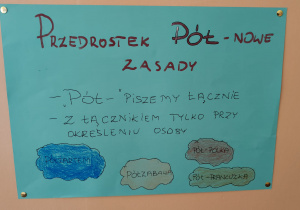 PRZEDROSTEK PÓŁ-NOWE
ZASADY
- "PÓŁ-" PISZEMY ŁĄCZNIE
- Z ŁĄCZNIKIEM TYLKO PRZY
OKREŚLENIU OSOBY
PÓŁ-POLKA
PÓŁZABAWA
PÓŁ-FRANCUZKA